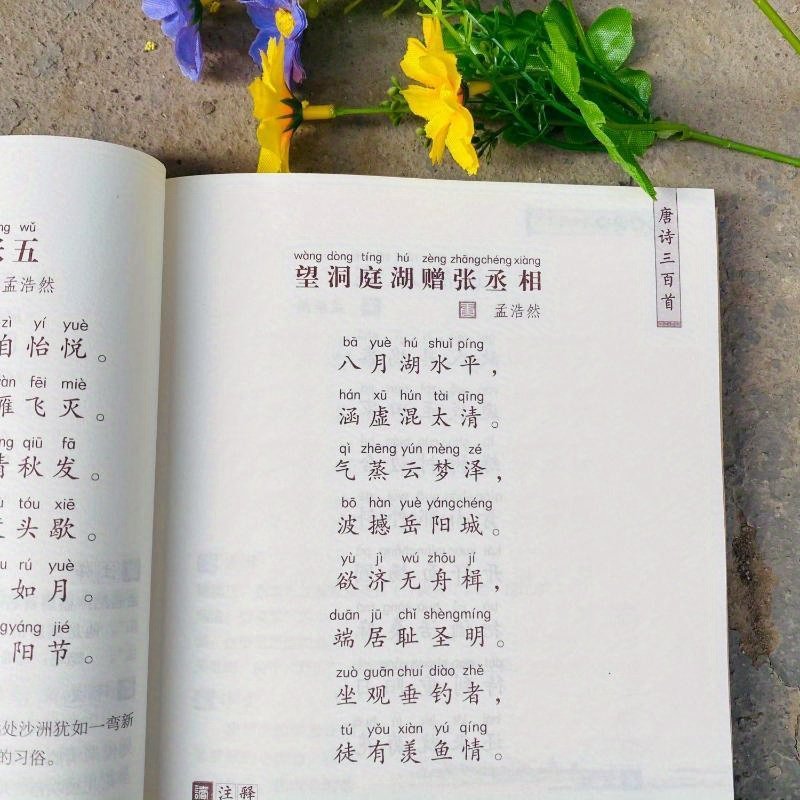 wǔ
五
孟浩然
zì yí yuè
自怡悦。
fēi miè
雁飞灭。
qiū fā
秋发。
tóu xiē
头歇。
rú yuè
如月。
yáng jié
阳节。
处沙洲犹如一弯新
的习俗。
唐诗三百首
wàng dòng tíng hú zèng zhāng chéng xiàng
望洞庭湖赠张丞相
孟浩然
bā yuè hú shuǐ píng
八月湖水平，
hán xū hún tài qīng
涵虚混太清。
qì zhēng yún mèng zé
气蒸云梦泽，
bō hàn yuè yáng chéng
波撼岳阳城。
yù jì wú zhōu jí
欲济无舟楫，
duān jū chǐ shèng míng
端居耻圣明。
zuò guān chuí diào zhě
坐观垂钓者，
tú yǒu xiàn yú qíng
徒有羡鱼情。
注释